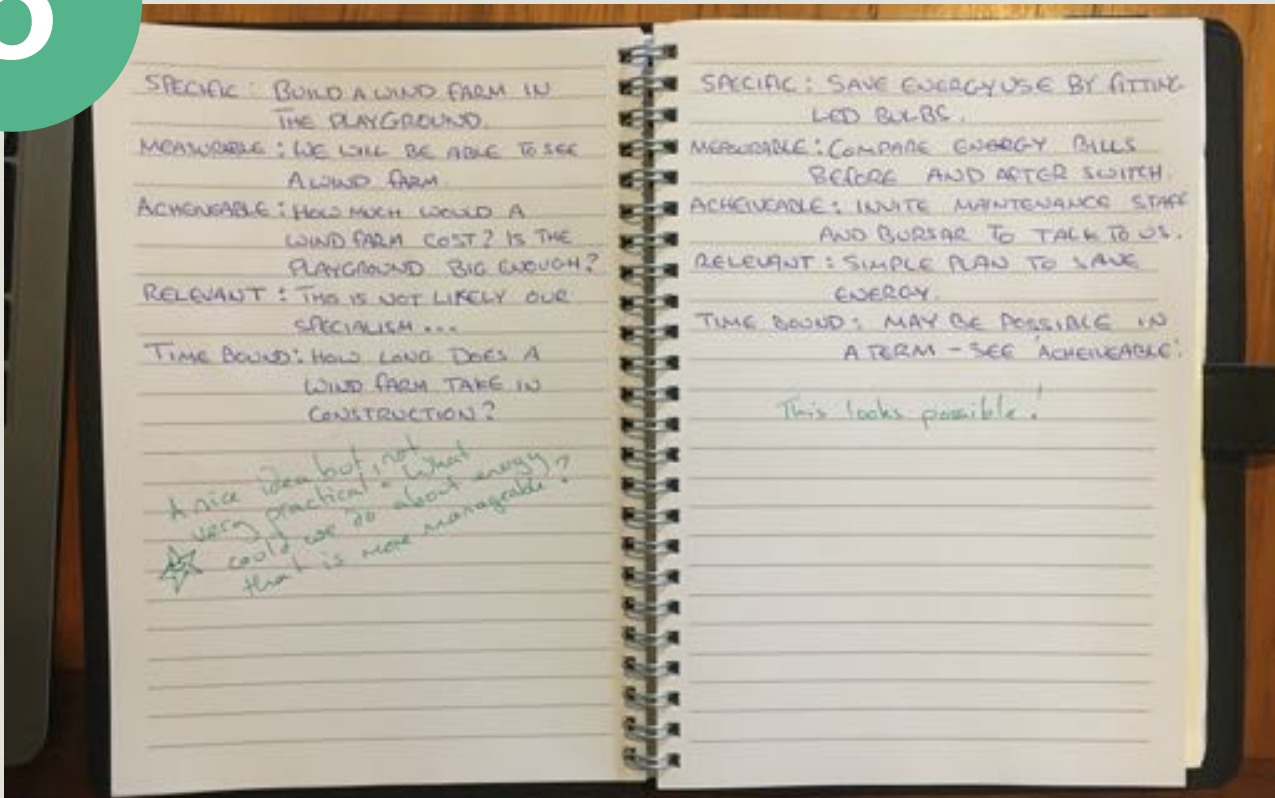 SPECIFIC : BUILD A WIND FARM IN
THE PLAYGROUND.
MEASURABLE : WE WILL BE ABLE TO SEE
A WIND FARM.
ACHEIVEABLE : HOW MUCH WOULD A
WIND FARM COST? IS THE
PLAYGROUND BIG ENOUGH?
RELEVANT : THIS IS NOT LIKELY OUR
SPECIALISM ...
TIME BOUND: HOW LONG DOES A
WIND FARM TAKE IN
CONSTRUCTION?
A nice idea but not
very practical - What
could we do about energy
that is more manageable?
SPECIFIC : SAVE ENERGY USE BY FITTING
LED BULBS.
MEASURABLE : COMPARE ENERGY BILLS
BEFORE AND AFTER SWITCH.
ACHEIVEABLE : INVITE MAINTENANCE STAFF
AND BURSAR TO TALK TO US.
RELEVANT : SIMPLE PLAN TO SAVE
ENERGY.
TIME BOUND : MAY BE POSSIBLE IN
A TERM - SEE 'ACHEIVEABLE'.
This looks possible!